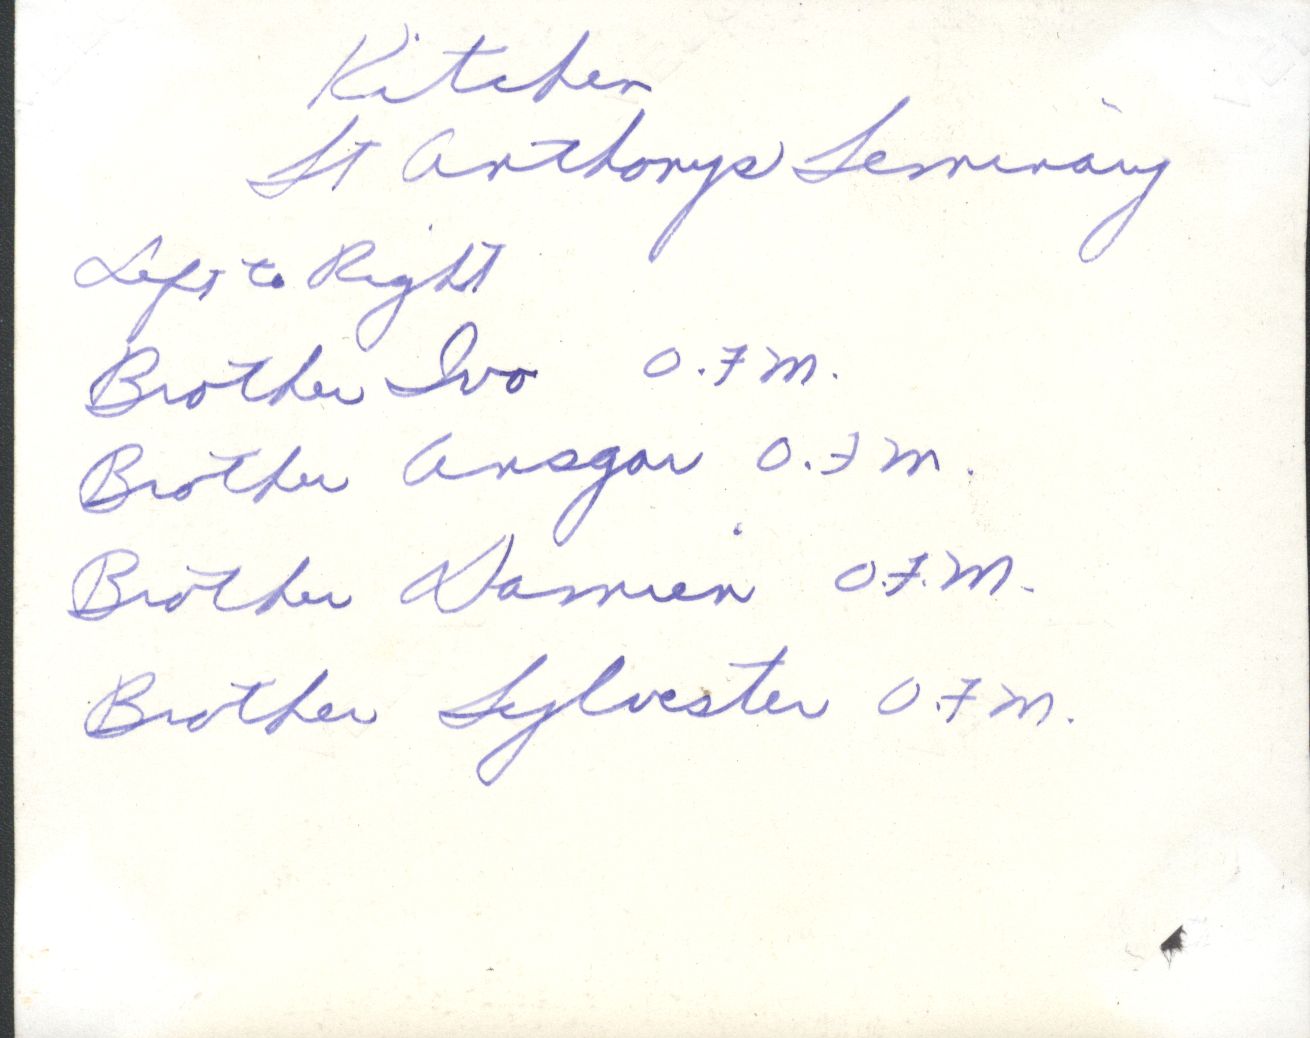 Kitchen
St Anthonys Seminary
Left to Right
Brother Ivo O.F.M.
Brother Ansgar O.F M.
Brother Damien O.F.M.
Brother Sylvester O.F.M.